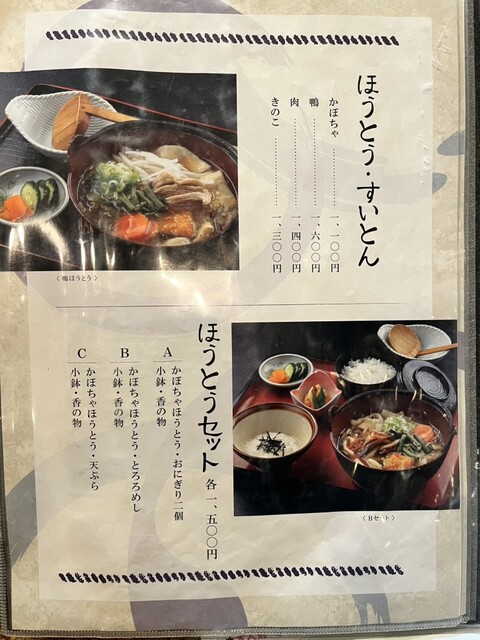 ほうとう・すいとん
かぼちゃ…………一、一〇〇円
鴨…………一、六〇〇円
肉…………一、四〇〇円
きのこ…………一、三〇〇円
〈鴨ほうとう〉
ほうとうセット 各一、五〇〇円
A かぼちゃほうとう・おにぎり二個
小鉢・香の物
B かぼちゃほうとう・とろろめし
小鉢・香の物
C かぼちゃほうとう・天ぷら
小鉢・香の物
〈Bセット〉